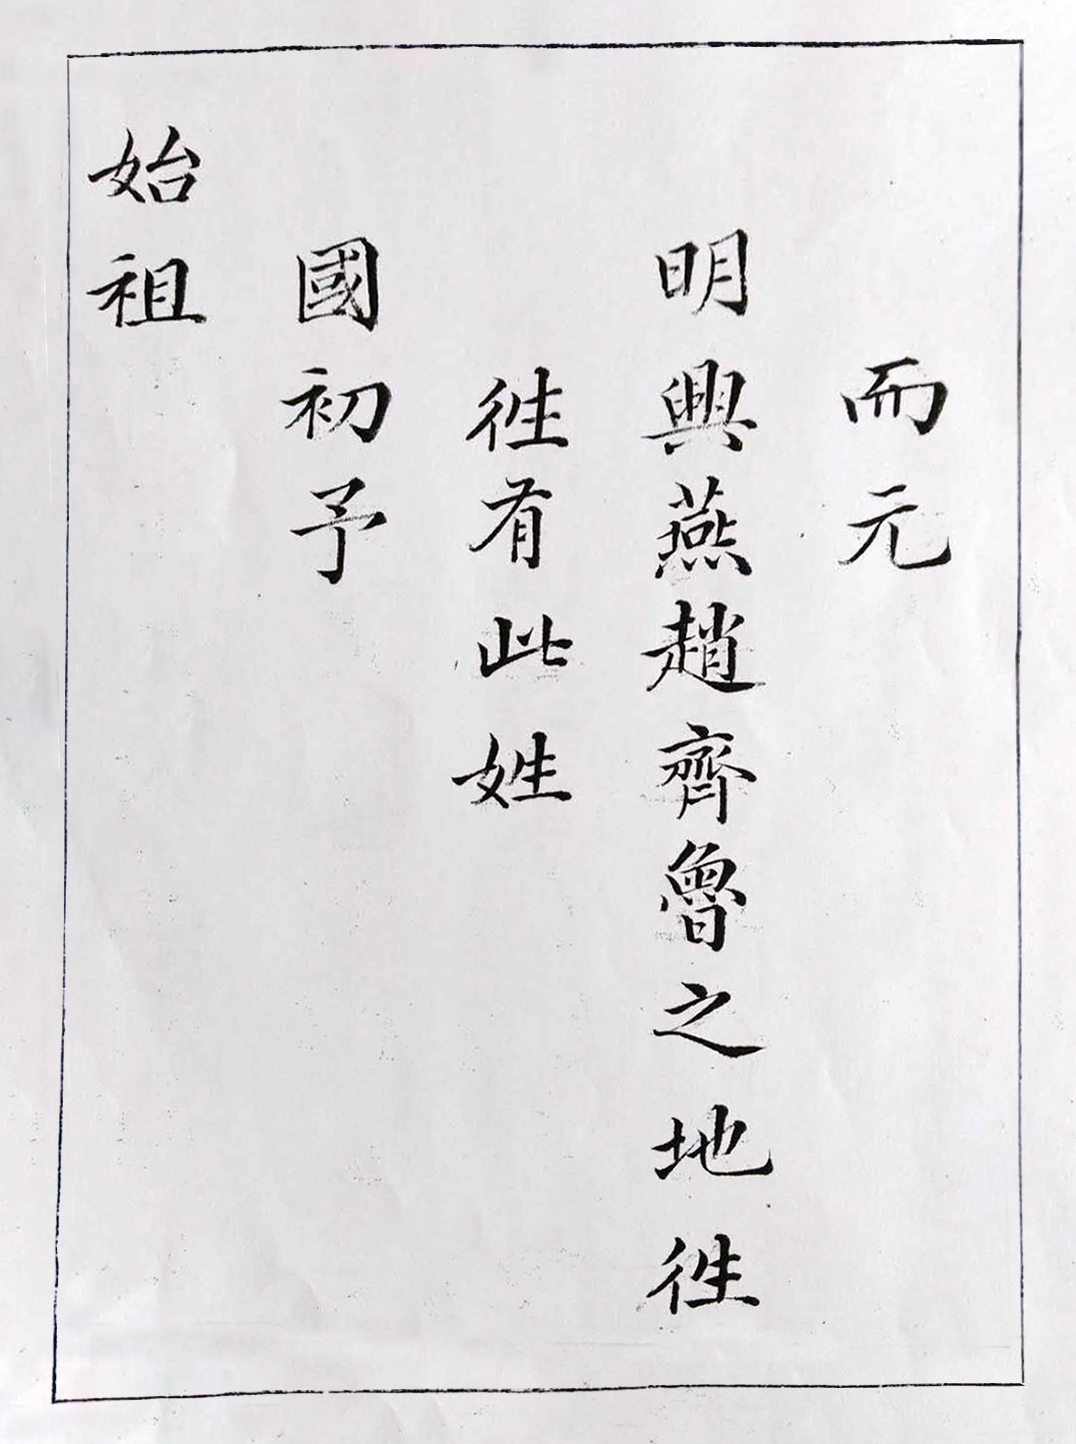 而元
明興燕趙齊魯之地徃
徃有此姓
國初予
始祖